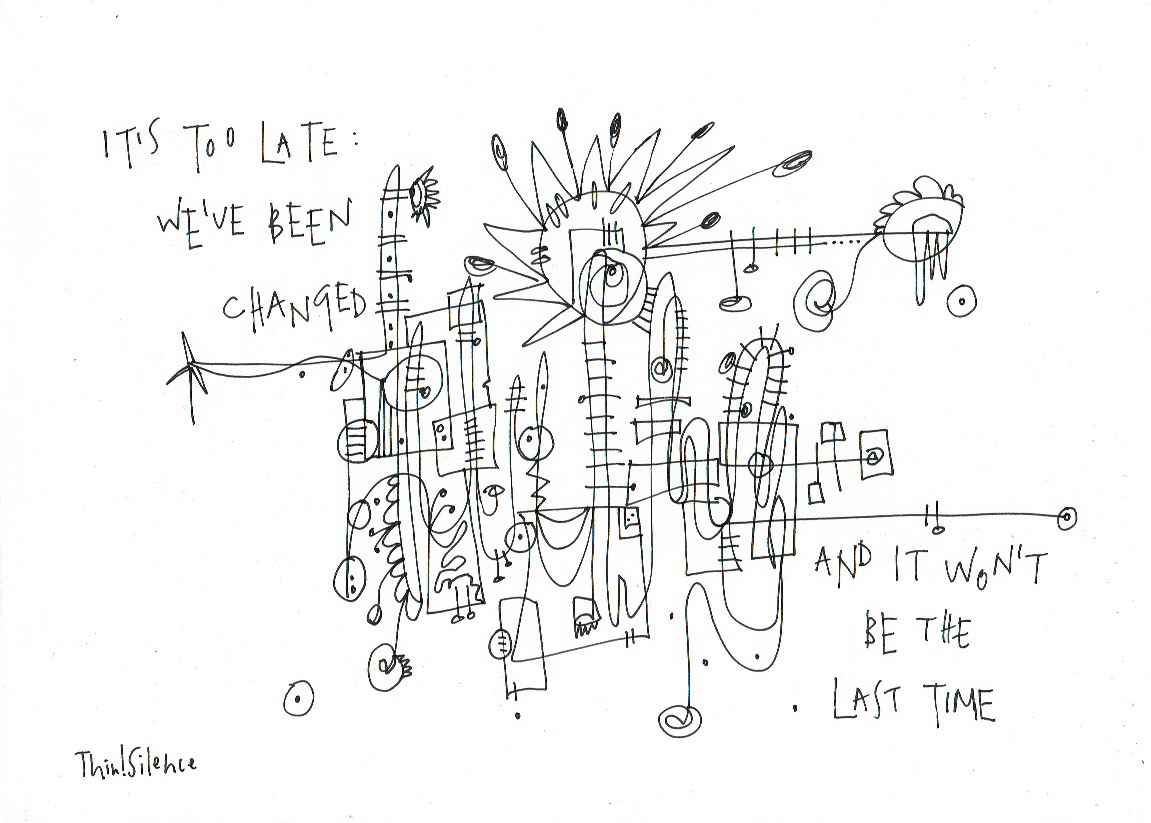 IT'S TOO LATE:
WE'VE BEEN
CHANGED
AND IT WON'T
BE THE
LAST TIME
Thin!Silence